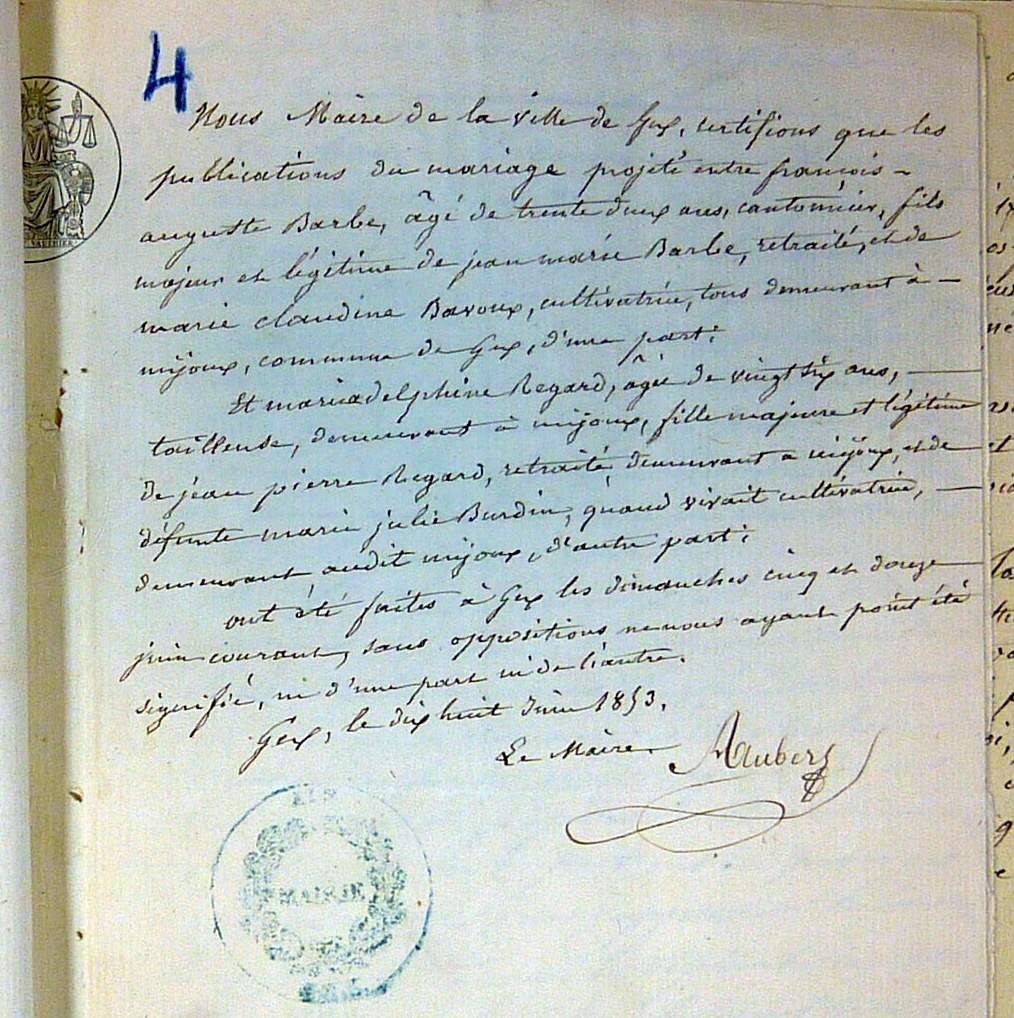 4
Nous Maire de la ville de Gex, certifions que les
publications du mariage projeté entre françois-
auguste Barbe, âgé de trente deux ans, cantonnier, fils
majeur et légitime de jean marie Barbe, retraité, et de
marie claudine Bavoux, cultivatrice, tous demeurant à -
mijoux, commune de Gex, d'une part;
Et marie delphine Regard, âgée de vingt six ans,
tailleuse, demeurant à mijoux, fille majeure et légitime
de jean pierre Regard, retraité demeurant a mijoux, et de
défunte marie julie Burdin, quand vivait cultivatrice,
demeurant audit mijoux, d'autre part;
ont été faites à Gex les dimanches cinq et douze
juin courant, sans oppositions ne nous ayant point été
signifié, ni d'une part ni de l'autre.
Gex, le dix huit Juin 1853.
Le Maire
MAIRIE